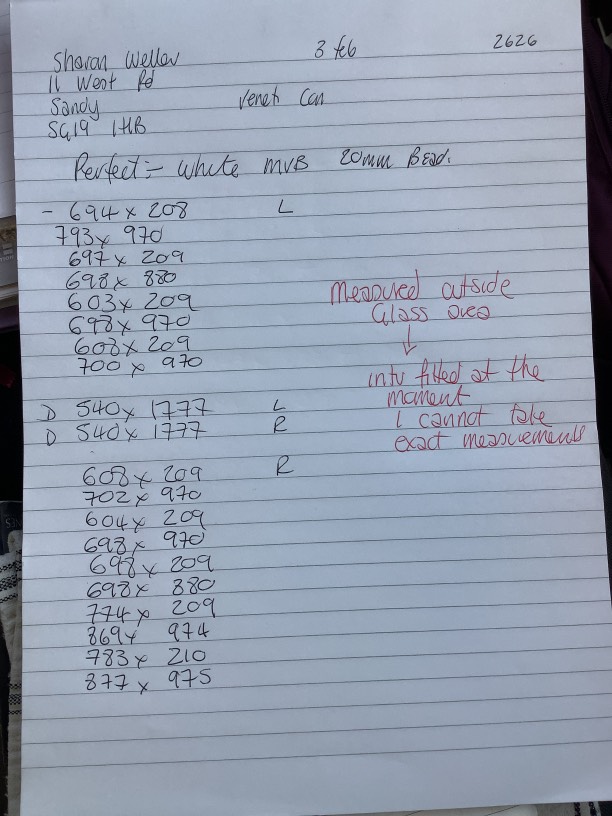 Sharan Weller 3 feb 2626
11 West Rd
Sandy Veneti Can
SG19 1HB
Perfect :- White MVB 20mm Bead.
- 694 x 208 L
793 x 970
697 x 209
698 x 880
603 x 209
698 x 970
608 x 209
700 x 970
D 540 x 1777 L
D 540 x 1777 R
608 x 209 R
702 x 970
604 x 209
698 x 970
698 x 209
698 x 880
774 x 209
869 x 974
783 x 210
877 x 975
Measured outside
Glass area
↓
intu fitted at the
moment
I cannot take
exact measurements